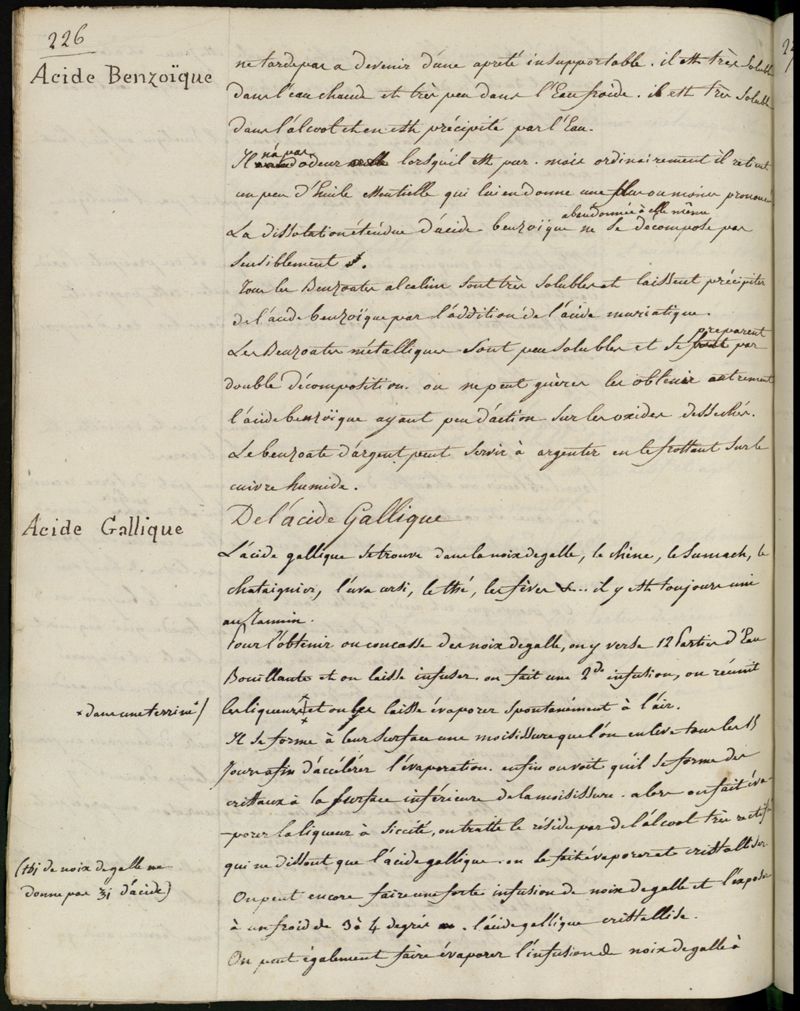 226
Acide Benzoïque
ne tarde pas a devenir d'une apreté insupportable. il est très soluble
dans l'eau chaude et très peu dans l'Eau froide. il est très soluble
dans l'alcool et en est précipité par l'Eau.
n'a pas
Il odeur lorsqu'il est pur. mais ordinairement il retient
un peu d'huile essentielle qui lui en donne une plus ou moins prononcée
abandonnée à elle même
La dissolution étendue d'acide benzoïque ne se décompose pas
sensiblement.
Tous les Benzoates alcalins sont très solubles et laissent précipiter
de l'acide benzoïque par l'addition de l'acide muriatique.
preparent
Les Benzoates métalliques sont peu solubles et se font par
double décomposition. on ne peut guères les obtenir autrement
l'acide benzoïque ayant peu d'action sur les oxides desséchés.
Le benzoate d'argent peut servir à argenter en le frottant sur le
cuivre humide.
Acide Gallique
De l'acide Gallique
L'acide gallique se trouve dans la noix de galle, le chêne, le Sumach, le
chataignier, l'uva ursi, le thé, les fèves &... il y est toujours uni
au Tannin.
Pour l'obtenir on concasse des noix de galle, on y verse 12 Parties d'Eau
Bouillante et on laisse infuser. on fait une 2de infusion, on réunit
× dans une terrine/
les liqueurs × et on les laisse évaporer spontanément à l'air.
Il se forme à leur surface une moisissure que l'on enlève tous les 15
Jours afin d'accélérer l'évaporation. enfin on voit qu'il se forme des
cristaux à la surface inférieure de la moisissure. alors on fait éva-
-porer la liqueur à siccité, on traite le résidu par de l'alcool très rectifié
qui ne dissout que l'acide gallique. on le fait évaporer et cristalliser
(℔j de noix de galle ne
donne pas ʒj d'acide)
On peut encore faire une forte infusion de noix de galle et l'exposer
à un froid de 3 à 4 degrés. l'acide gallique cristallise.
On peut également faire évaporer l'infusion de noix de galle à